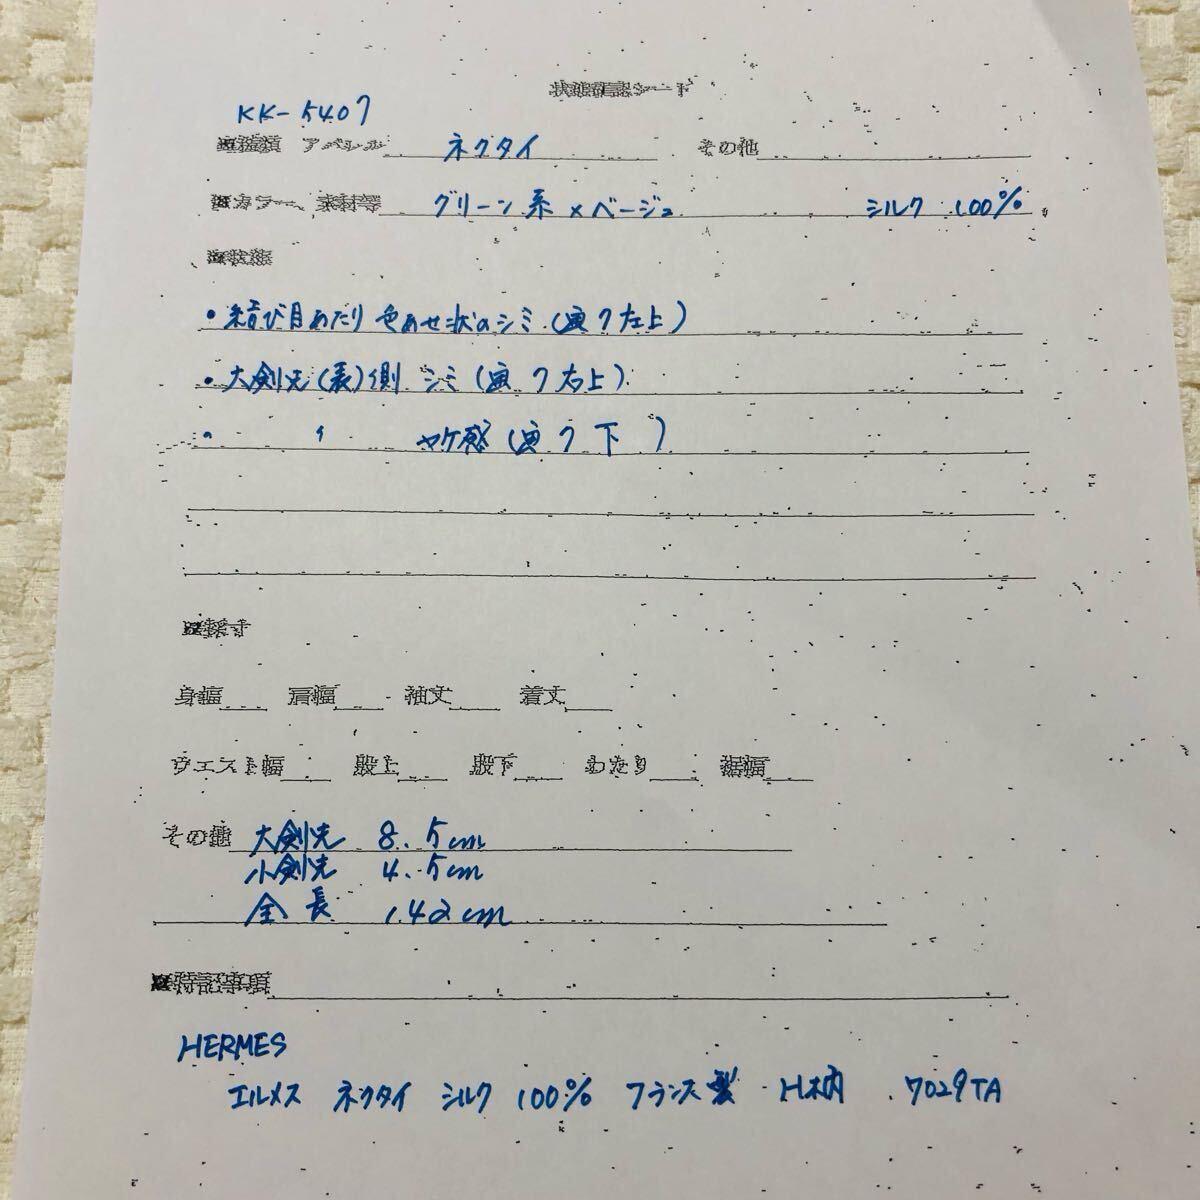 状態確認シート
KK-5407
※種類 アパレル ネクタイ その他
※カラー、素材等 グリーン系×ベージュ シルク 100%
※状態
・結び目あたり 色あせ状のシミ (画7左上)
・大剣先(表)側 シミ (画7右上)
・ 〃 ヤケ感 (画7下)
※採寸
身幅 肩幅 袖丈 着丈
ウエスト幅 股上 股下 わたり 裾幅
その他 大剣先 8.5cm
小剣先 4.5cm
全長 142cm
※特記事項
HERMES
エルメス ネクタイ シルク 100% フランス製 H柄 7029TA